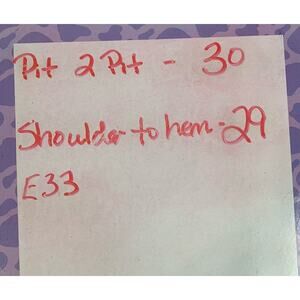 Pit 2 Pit - 30
Shoulder to hem - 29
E33